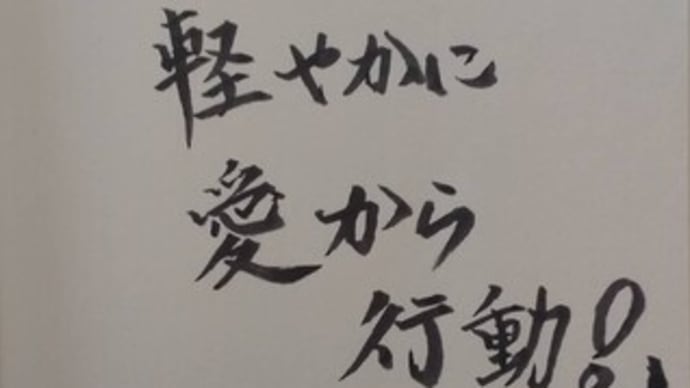 軽やかに
愛から
行動!